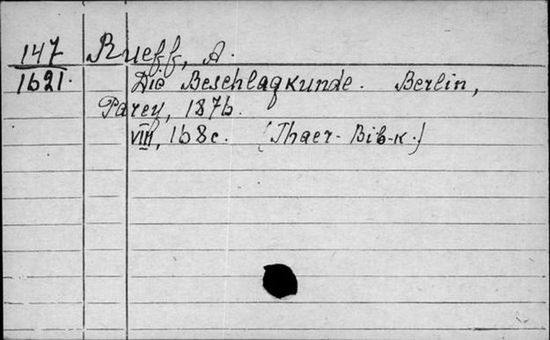 147 Rueff, A.
1621. Die Beschlagkunde. Berlin,
Parey, 1876.
VIII, 168c. (Thaer-Bib-k.)